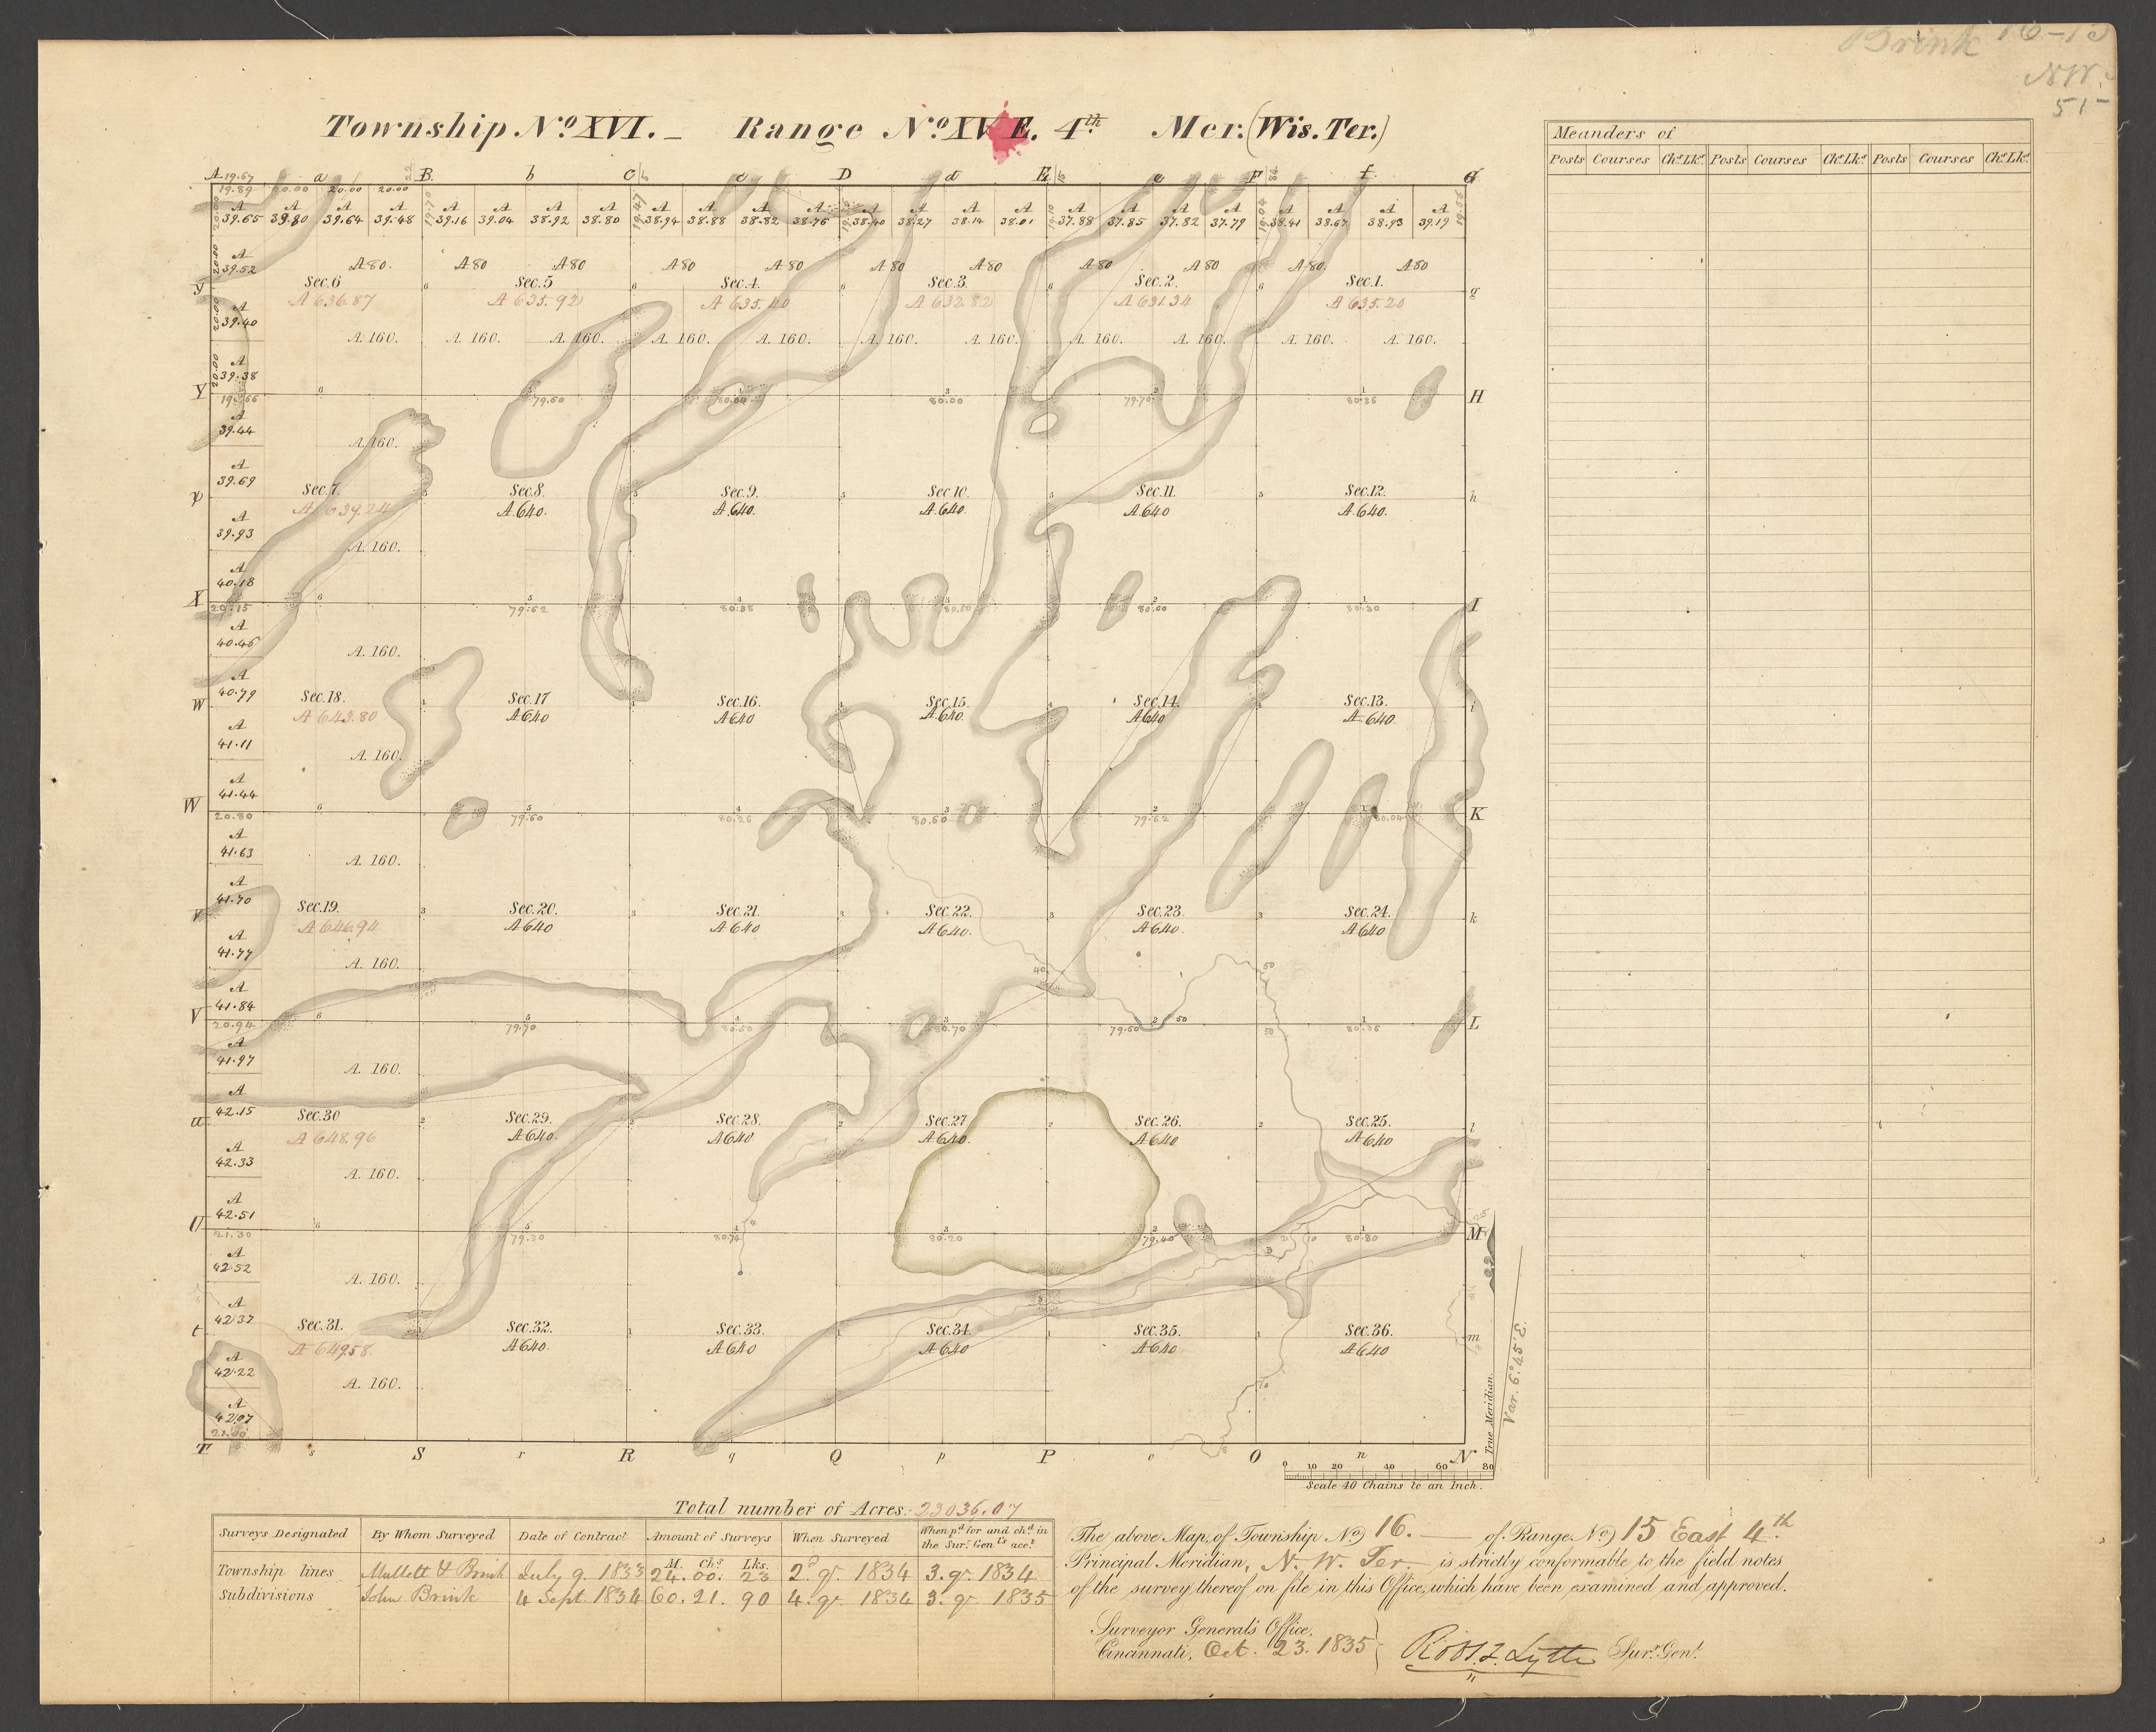 Brink 16–15
N.W.
51–
Township No XVI. – Range No XV E. 4th Mer. (Wis. Ter.)
Meanders of
Posts Courses Chs Lks Posts Courses Chs Lks Posts Courses Chs Lks
A 19.67 a B b C c D d E e F f G
19.89 20.00 20.00 20.00
A A A A A A A A A A A A A A A A A A A A A A A A
39.65 39.80 39.64 39.48 39.16 39.04 38.92 38.80 38.94 38.88 38.82 38.76 38.40 38.27 38.14 38.01 37.88 37.85 37.82 37.79 38.41 38.67 38.93 39.19
A
39.52
A 80. A 80 A 80 A 80 A 80 A 80 A 80 A 80 A 80 A 80 A 80
y Sec. 6 Sec. 5 Sec. 4. Sec. 3. Sec. 2. Sec. 1. g
A 636.87 A 635.92 A 635.40 A 632.82 A 631.34 A 635.20
A
39.40
A. 160. A. 160. A. 160. A. 160. A. 160. A. 160. A. 160. A. 160. A. 160. A. 160. A. 160.
A
39.38
Y H
79.60 80.04 80.00 79.70 80.36
A
39.44
A. 160.
A
39.69
Sec. 7. Sec. 8. Sec. 9. Sec. 10. Sec. 11. Sec. 12. h
A 639.24 A 640. A 640. A 640. A 640 A 640.
A
39.93
A. 160.
A
40.18
X I
20.15 79.62 80.38 80.00 80.30
A
40.45
A. 160.
A
40.79
w Sec. 18. Sec. 17 Sec. 16 Sec. 15 Sec. 14. Sec. 13. i
A 643.80 A 640 A 640 A 640. A 640 A 640.
A
41.11
A. 160.
A
41.44
W K
20.80 79.60 80.26 80.60 79.62 80.04
A
41.63
A. 160.
A
41.70
v Sec. 19. Sec. 20. Sec. 21. Sec. 22. Sec. 23. Sec. 24. k
A 646.94 A 640 A 640 A 640. A 640. A 640
A
41.77
A. 160.
A
41.84
40 50
V L
20.94 79.70 80.50 80.70 79.60 50 50 80.36
A
41.97
A. 160.
A
42.15
u Sec. 30 Sec. 29. Sec. 28. Sec. 27. Sec. 26. Sec. 25. l
A 648.96 A 640. A 640 A 640. A 640 A 640
A
42.33
A. 160.
A
42.51
U M
21.30 79.30 80.74 80.20 79.40 80.80
A
42.52
A. 160.
A
42.37
t Sec. 31. Sec. 32. Sec. 33. Sec. 34. Sec. 35. Sec. 36. m
A 649.58. A 640. A 640 A 640 A 640 A 640
A
42.22
A. 160.
A
42.07
T s S r R q Q p P o O n N
True Meridian.
Var. 6° 45' E.
0 10 20 40 60 80
Scale 40 Chains to an Inch.
Total number of Acres: 23036.07
Surveys Designated By Whom Surveyed Date of Contract Amount of Surveys When Surveyed When pd for and chd in the Sur. Genls acct
M. Chs Lks.
Township lines Mullett & Brink July 9. 1833 24. 00. 23 2d qr 1834 3. qr. 1834
Subdivisions John Brink 4 Sept 1834 60. 21. 90 4. qr 1834 3. qr 1835
The above Map, of Township No 16. — of Range No 15 East 4th
Principal Meridian, N. W. Ter. is strictly conformable to the field notes
of the survey thereof on file in this Office, which have been examined and approved.
Surveyor General's Office,
Cincinnati, Oct. 23. 1835
Robt. T. Lytle Surr Genl.